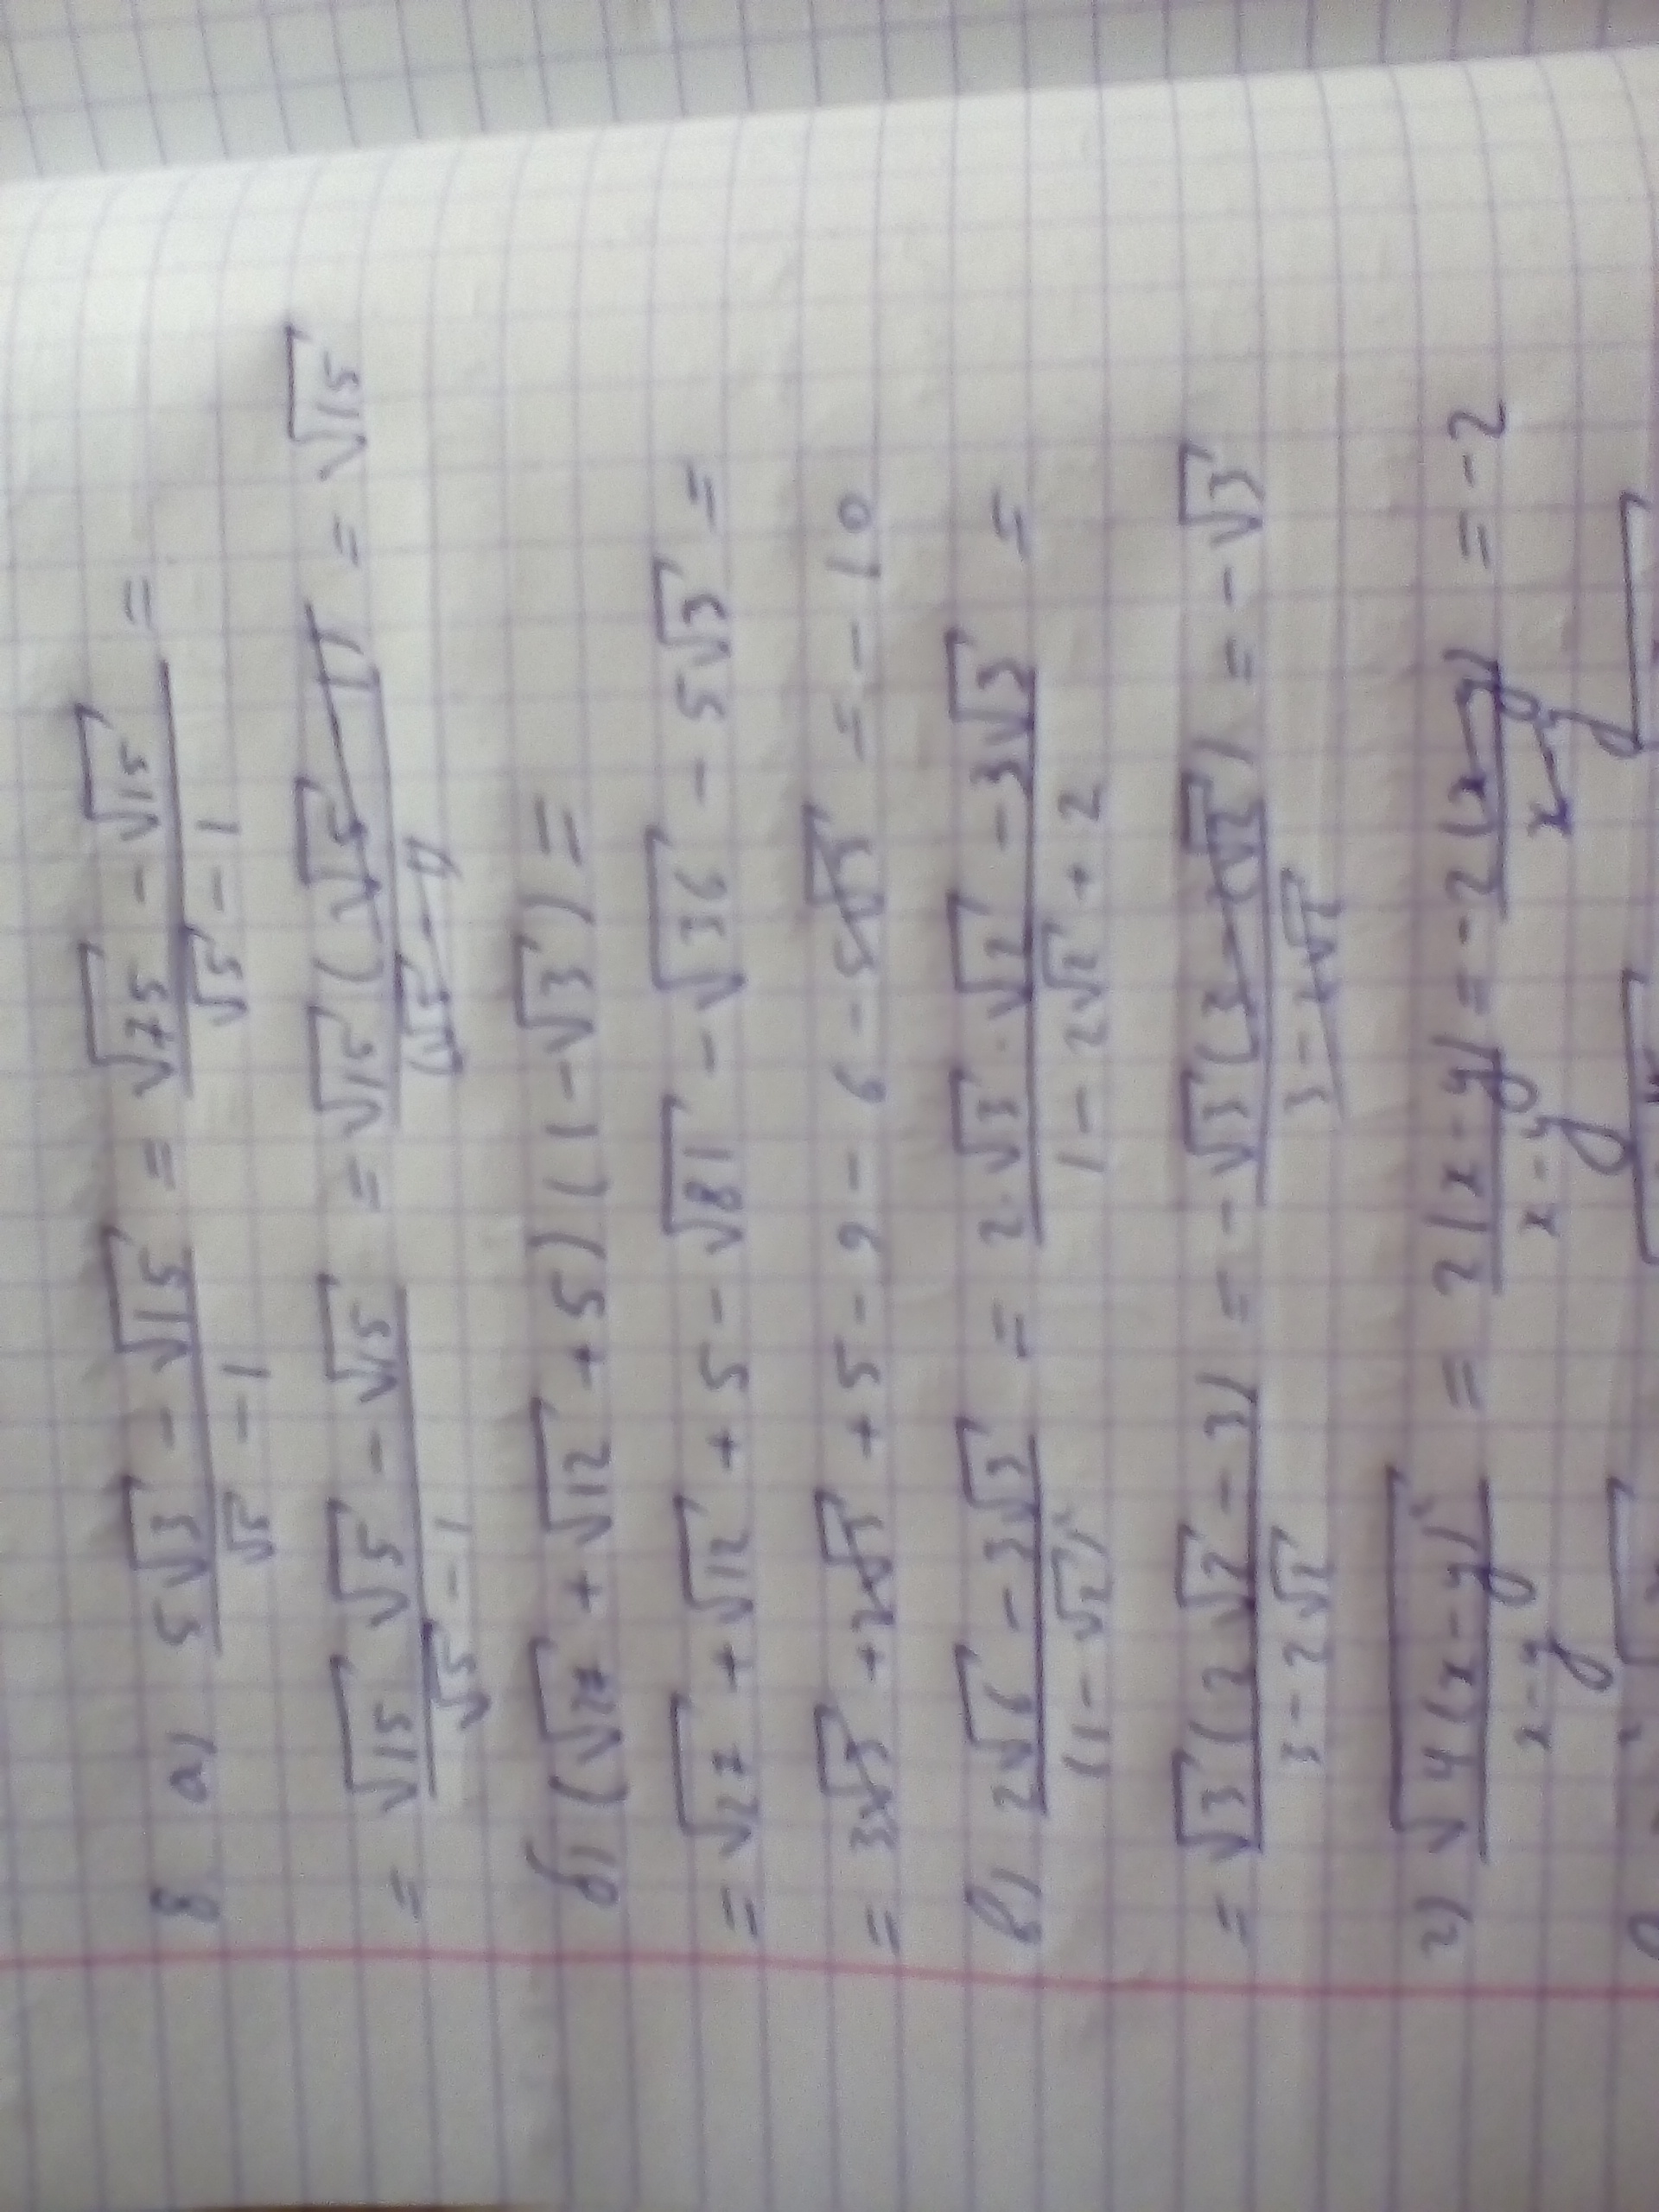 8 а) (5√3 - √15)/(√5 - 1) = (√75 - √15)/(√5 - 1) =
= (√15 √5 - √15)/(√5 - 1) = √15(√5 - 1)/(√5 - 1) = √15
б) (√27 + √12 + 5)(1 - √3) =
= √27 + √12 + 5 - √81 - √36 - 5√3 =
= 3√3 + 2√3 + 5 - 9 - 6 - 5√3 = -10
в) (2√6 - 3√3)/(1 - √2)² = (2·√3·√2 - 3√3)/(1 - 2√2 + 2) =
= √3(2√2 - 3)/(3 - 2√2) = -√3(3 - 2√2)/(3 - 2√2) = -√3
г) √4(x - y)²/(x - y) = 2|x - y|/(x - y) = -2(x - y)/(x - y) = -2